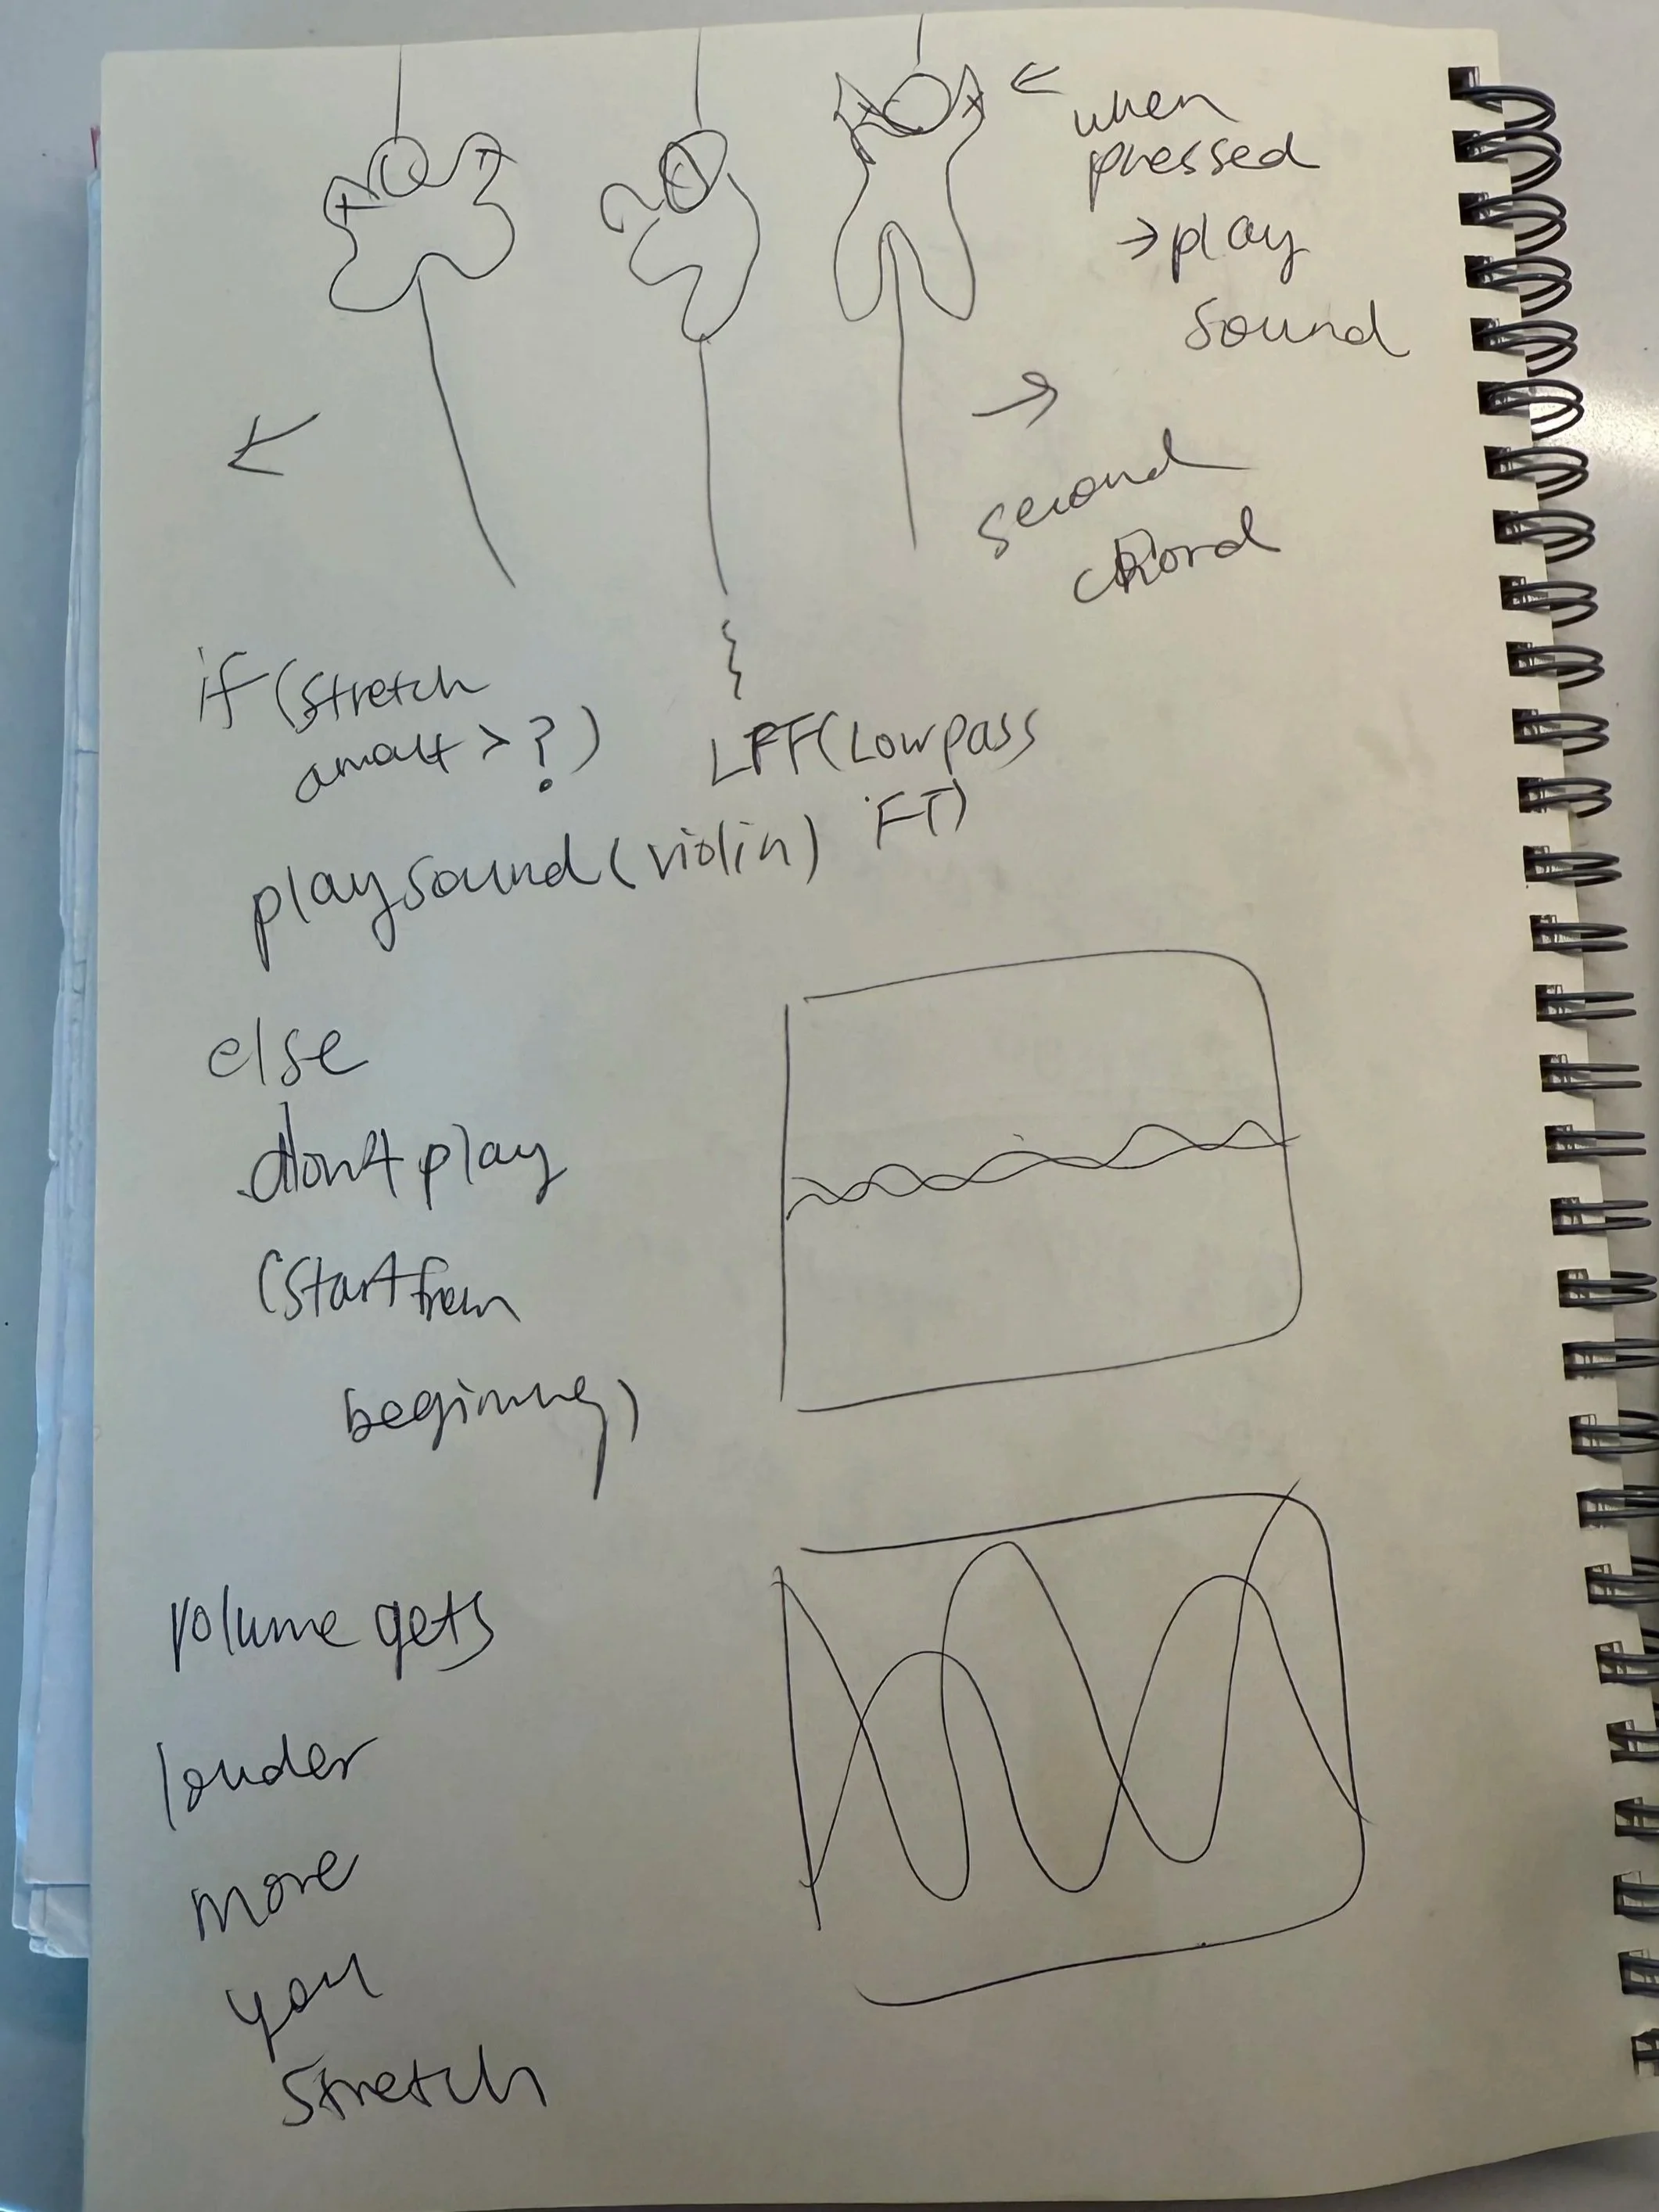 when
pressed
→ play
sound
second
chord
if (stretch
amout > ?)
playsound (violin)
LPF (Low pass
FT)
else
don't play
(start from
beginning)
volume gets
louder
more
you
stretch